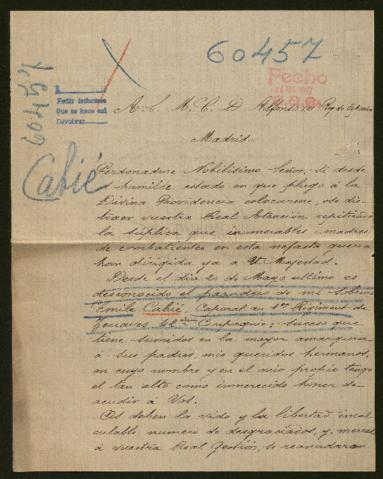 60457
Fecho
60457
Pedir informes
Que se hace así
Devolver
Cabié
A. S. M. C. D. Alfonso Rey de España
Madrid.
Perdonadme Nobilísimo Señor, si desde
humilde estado en que plugo á la
Divina Providencia colocarme, ose dis-
traer vuestra Real Atención repitiendo
la súplica que innumerables madres
de combatientes en esta nefasta guerra
han dirigida ya a V. Majestad.
Desde el dia 20 de Mayo ultimo es
desconocido el paradero de mi sobrino
Emile Cabié, Caporal en 1er Regiment de
Zouaves 42 Compagnie; suceso que
tiene sumidos en la mayor amargura
á sus padres, mis queridos hermanos,
en cuyo nombre y en el mio propio tengo
el tan alto como inmerecido honor de
acudir á Vos.
Os deben la vida y la libertad incal
culable numero de desgraciados, y, merced
á vuestra Real Gestión, se reanudaron